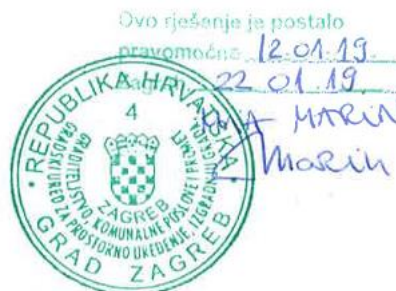 Ovo rješenje je postalo
pravomoćno 12.01.19.
Zagreb 22 01.19.
MARIN
Marin
REPUBLIKA HRVATSKA
4
GRADSKI URED ZA PROSTORNO UREĐENJE, IZGRADNJU GRADA,
GRADITELJSTVO, KOMUNALNE POSLOVE I PROMET
ZAGREB
GRAD ZAGREB